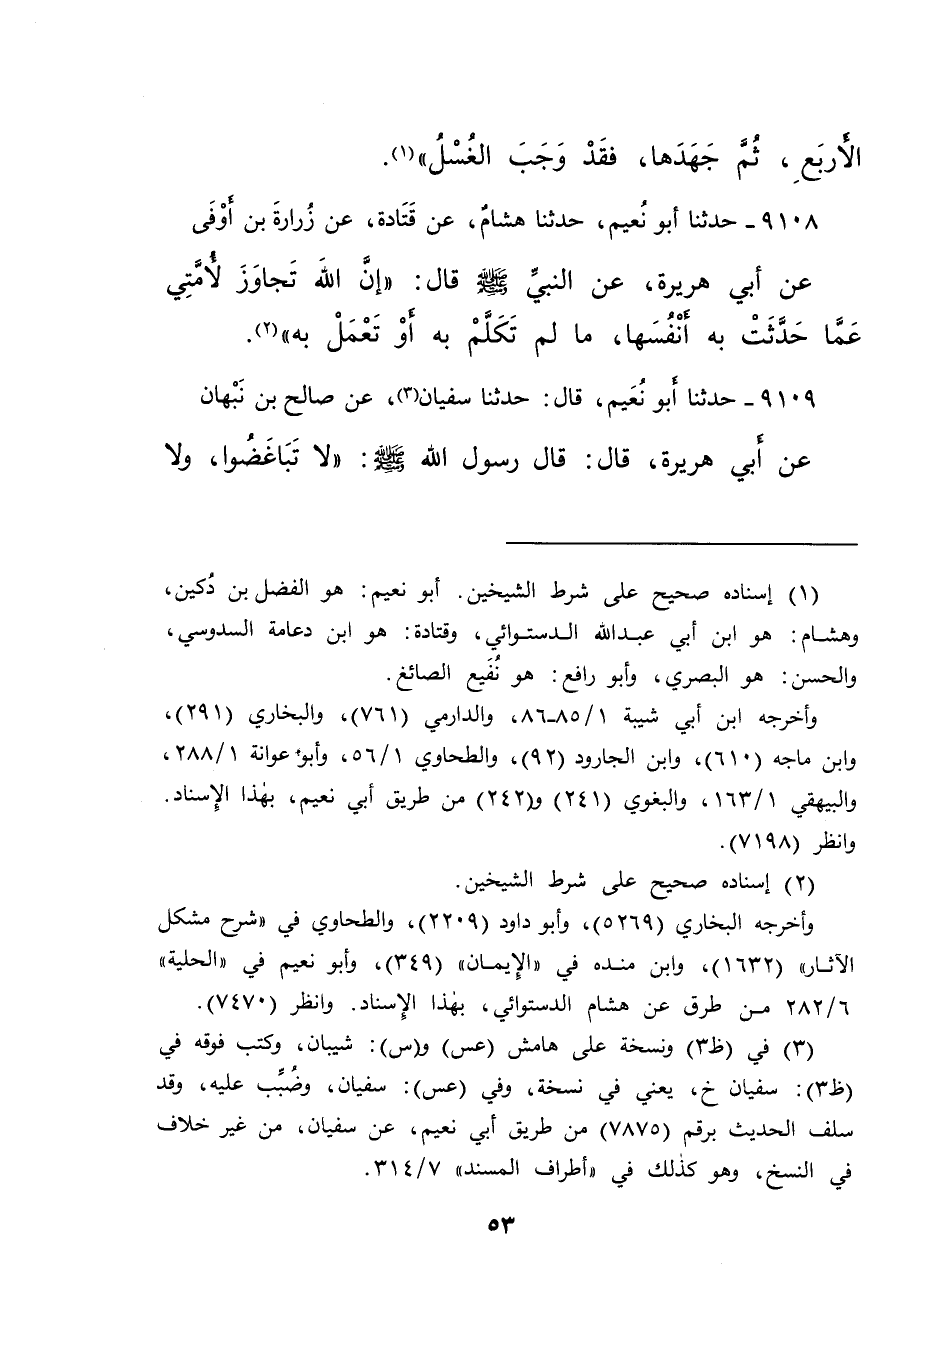 الأَربَعِ، ثُمَّ جَهَدَها، فقَدْ وَجَبَ الغُسْلُ»(١).
٩١٠٨ـ حدثنا أبو نُعيم، حدثنا هشامٌ، عن قَتَادة، عن زُرارةَ بن أَوْفَى
عن أبي هريرة، عن النبيِّ ﷺ قال: «إنَّ اللهَ تَجاوَزَ لأُمَّتِي
عَمَّا حَدَّثَتْ به أَنْفُسَها، ما لم تَكَلَّمْ به أَوْ تَعْمَلْ به»(٢).
٩١٠٩ـ حدثنا أَبو نُعَيم، قال: حدثنا سفيان(٣)، عن صالح بن نَبْهان
عن أَبي هريرة، قال: قال رسول الله ﷺ: «لا تَبَاغَضُوا، ولا
(١) إسناده صحيح على شرط الشيخين. أبو نعيم: هو الفضل بن دُكين،
وهشام: هو ابن أبي عبدالله الدستوائي، وقتادة: هو ابن دعامة السدوسي،
والحسن: هو البصري، وأبو رافع: هو نُفَيع الصائغ.
وأخرجه ابن أبي شيبة ٨٥/١ـ٨٦، والدارمي (٧٦١)، والبخاري (٢٩١)،
وابن ماجه (٦١٠)، وابن الجارود (٩٢)، والطحاوي ٥٦/١، وأبو عوانة ٢٨٨/١،
والبيهقي ١٦٣/١، والبغوي (٢٤١) و(٢٤٢) من طريق أبي نعيم، بهٰذا الإِسناد.
وانظر (٧١٩٨).
(٢) إسناده صحيح على شرط الشيخين.
وأخرجه البخاري (٥٢٦٩)، وأبو داود (٢٢٠٩)، والطحاوي في «شرح مشكل
الآثار» (١٦٣٢)، وابن منده في «الإِيمان» (٣٤٩)، وأبو نعيم في «الحلية»
٢٨٢/٦ من طرق عن هشام الدستوائي، بهٰذا الإِسناد. وانظر (٧٤٧٠).
(٣) في (ظ٣) ونسخة على هامش (عس) و(س): شيبان، وكتب فوقه في
(ظ٣): سفيان خ، يعني في نسخة، وفي (عس): سفيان، وضُبِّب عليه، وقد
سلف الحديث برقم (٧٨٧٥) من طريق أبي نعيم، عن سفيان، من غير خلاف
في النسخ، وهو كذٰلك في «أطراف المسند» ٣١٤/٧.
٥٣